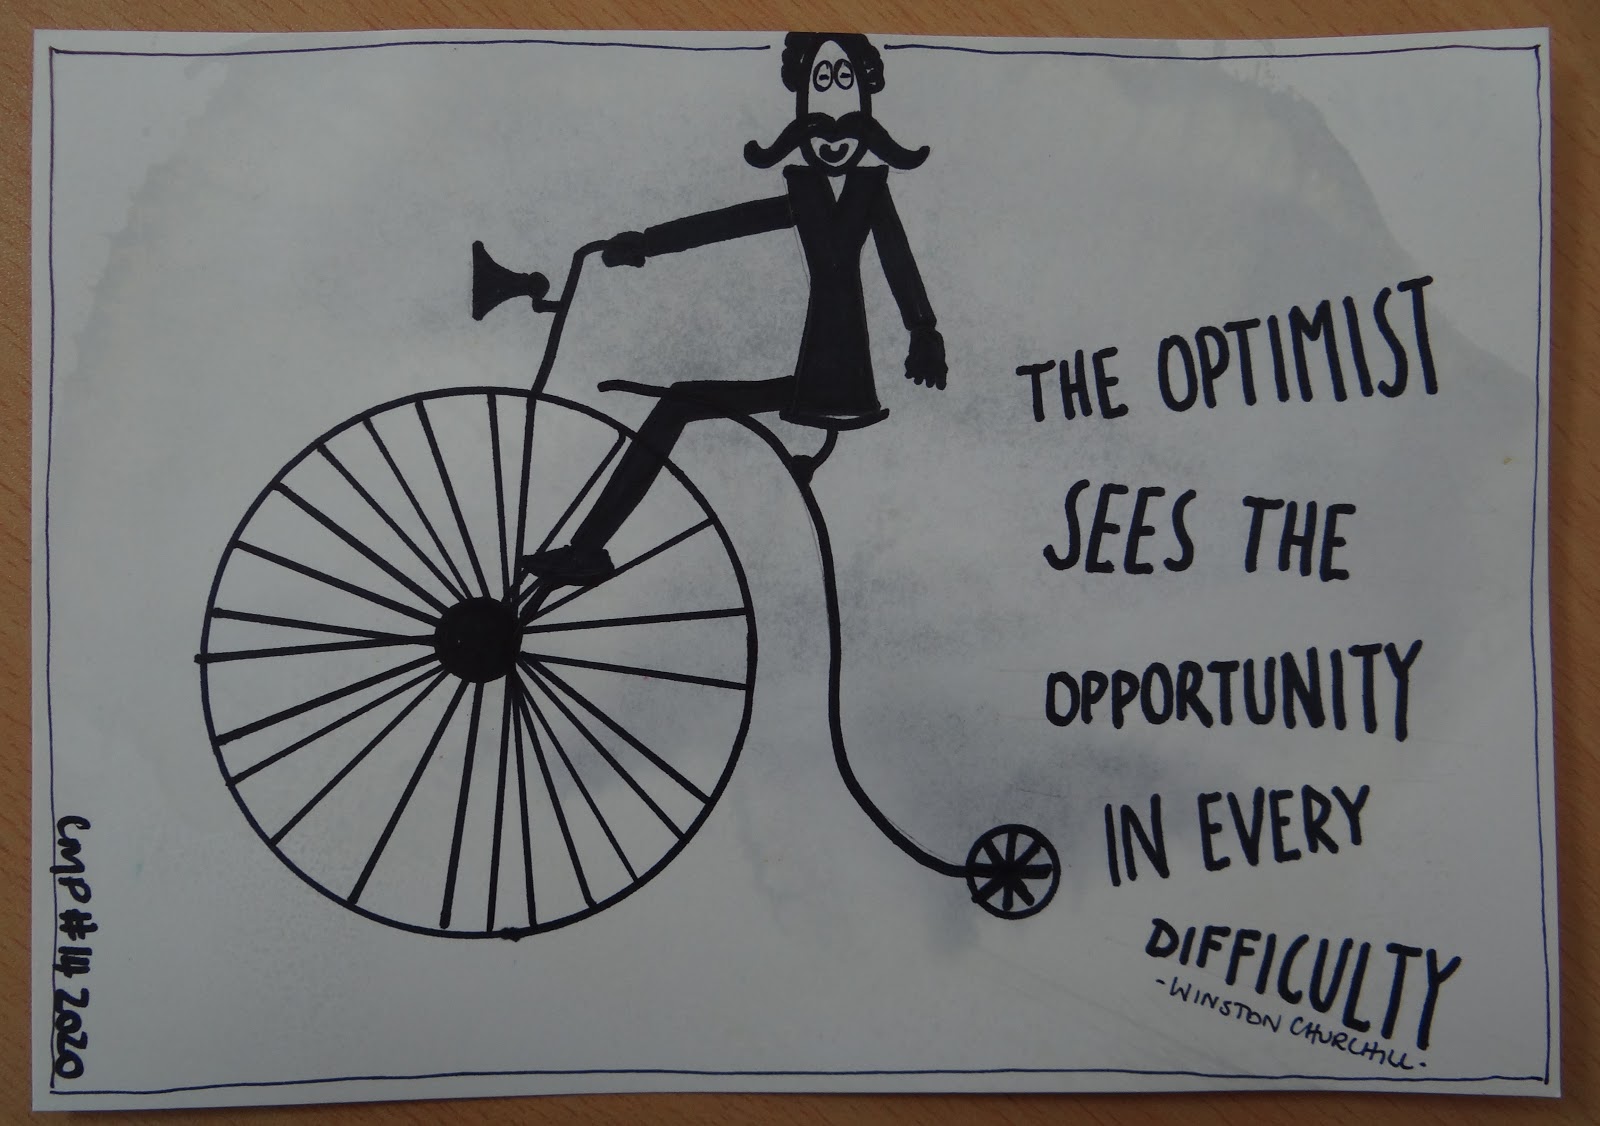 THE OPTIMIST
SEES THE
OPPORTUNITY
IN EVERY
DIFFICULTY
-WINSTON CHURCHILL-
CMP #14 2020